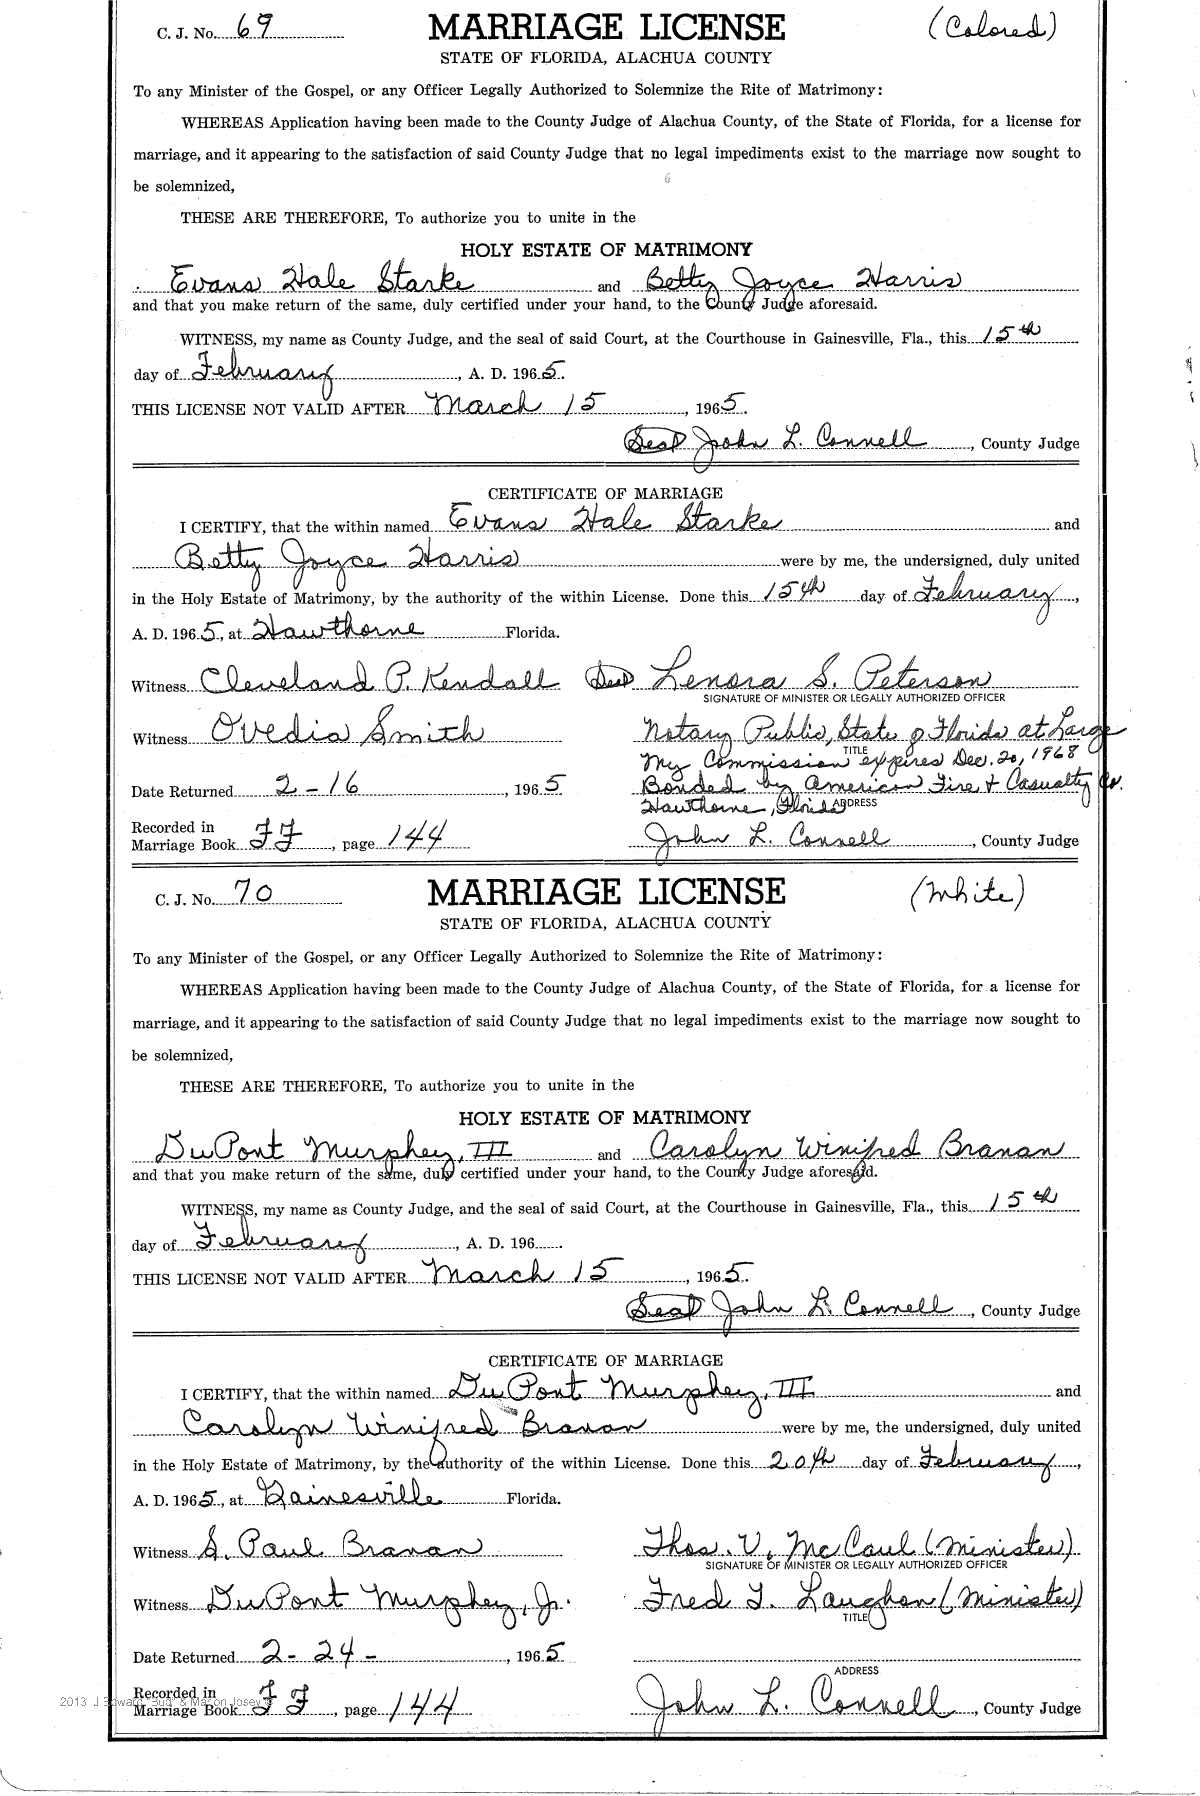 C. J. No. 69 MARRIAGE LICENSE (Colored)
STATE OF FLORIDA, ALACHUA COUNTY
To any Minister of the Gospel, or any Officer Legally Authorized to Solemnize the Rite of Matrimony:
WHEREAS Application having been made to the County Judge of Alachua County, of the State of Florida, for a license for
marriage, and it appearing to the satisfaction of said County Judge that no legal impediments exist to the marriage now sought to
be solemnized,
THESE ARE THEREFORE, To authorize you to unite in the
HOLY ESTATE OF MATRIMONY
Evans Hale Starke and Betty Joyce Harris
and that you make return of the same, duly certified under your hand, to the County Judge aforesaid.
WITNESS, my name as County Judge, and the seal of said Court, at the Courthouse in Gainesville, Fla., this 15th
day of February, A. D. 1965.
THIS LICENSE NOT VALID AFTER March 15, 1965.
(Seal) John L. Connell, County Judge
CERTIFICATE OF MARRIAGE
I CERTIFY, that the within named Evans Hale Starke and
Betty Joyce Harris were by me, the undersigned, duly united
in the Holy Estate of Matrimony, by the authority of the within License. Done this 15th day of February,
A. D. 1965, at Hawthorne Florida.
Witness Cleveland P. Kendall (Seal) Lenora S. Peterson
SIGNATURE OF MINISTER OR LEGALLY AUTHORIZED OFFICER
Witness Ovedia Smith Notary Public, State of Florida at Large
TITLE
My Commission expires Dec. 20, 1968
Date Returned 2-16, 1965 Bonded by American Fire & Casualty Co.
Hawthorne, Florida ADDRESS
Recorded in
Marriage Book FF, page 144 John L. Connell, County Judge
C. J. No. 70 MARRIAGE LICENSE (White)
STATE OF FLORIDA, ALACHUA COUNTY
To any Minister of the Gospel, or any Officer Legally Authorized to Solemnize the Rite of Matrimony:
WHEREAS Application having been made to the County Judge of Alachua County, of the State of Florida, for a license for
marriage, and it appearing to the satisfaction of said County Judge that no legal impediments exist to the marriage now sought to
be solemnized,
THESE ARE THEREFORE, To authorize you to unite in the
HOLY ESTATE OF MATRIMONY
DuPont Murphey, III and Carolyn Winifred Branan
and that you make return of the same, duly certified under your hand, to the County Judge aforesaid.
WITNESS, my name as County Judge, and the seal of said Court, at the Courthouse in Gainesville, Fla., this 15th
day of February, A. D. 196.
THIS LICENSE NOT VALID AFTER March 15, 1965.
(Seal) John L. Connell, County Judge
CERTIFICATE OF MARRIAGE
I CERTIFY, that the within named DuPont Murphey, III and
Carolyn Winifred Branan were by me, the undersigned, duly united
in the Holy Estate of Matrimony, by the authority of the within License. Done this 20th day of February,
A. D. 1965, at Gainesville Florida.
Witness S. Paul Branan Thos. V. McCaul (Minister)
SIGNATURE OF MINISTER OR LEGALLY AUTHORIZED OFFICER
Witness DuPont Murphey, Jr. Fred T. Laughon (Minister)
TITLE
Date Returned 2-24-, 1965
ADDRESS
2013 J Edward "Bud" & Macon Josey ©
Recorded in
Marriage Book FF, page 144 John L. Connell, County Judge